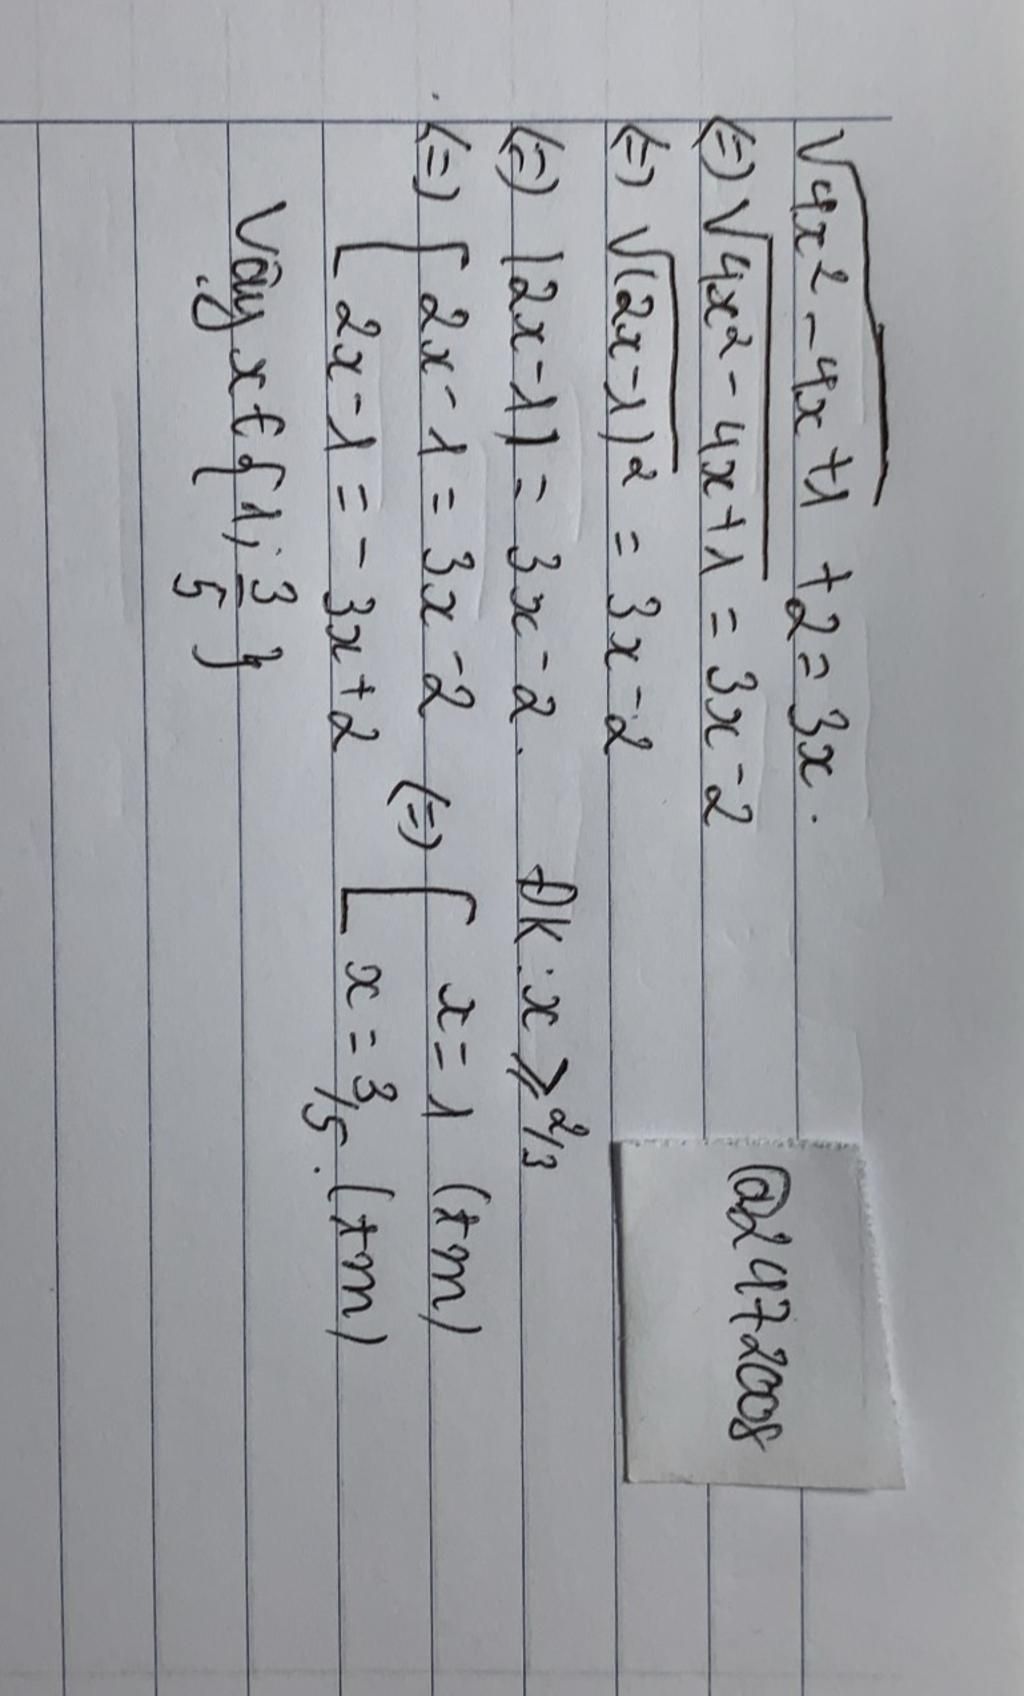 √4x² - 4x + 1 + 2 = 3x.
(=) √4x² - 4x + 1 = 3x - 2
(=) √(2x - 1)² = 3x - 2
(=) |2x - 1| = 3x - 2. ĐK: x ⩾ 2/3
(=) [ 2x - 1 = 3x - 2 (=) [ x = 1 (tm)
2x - 1 = - 3x + 2 x = 3/5. (tm)
Vậy x ∈ {1; 3/5}
@2472008